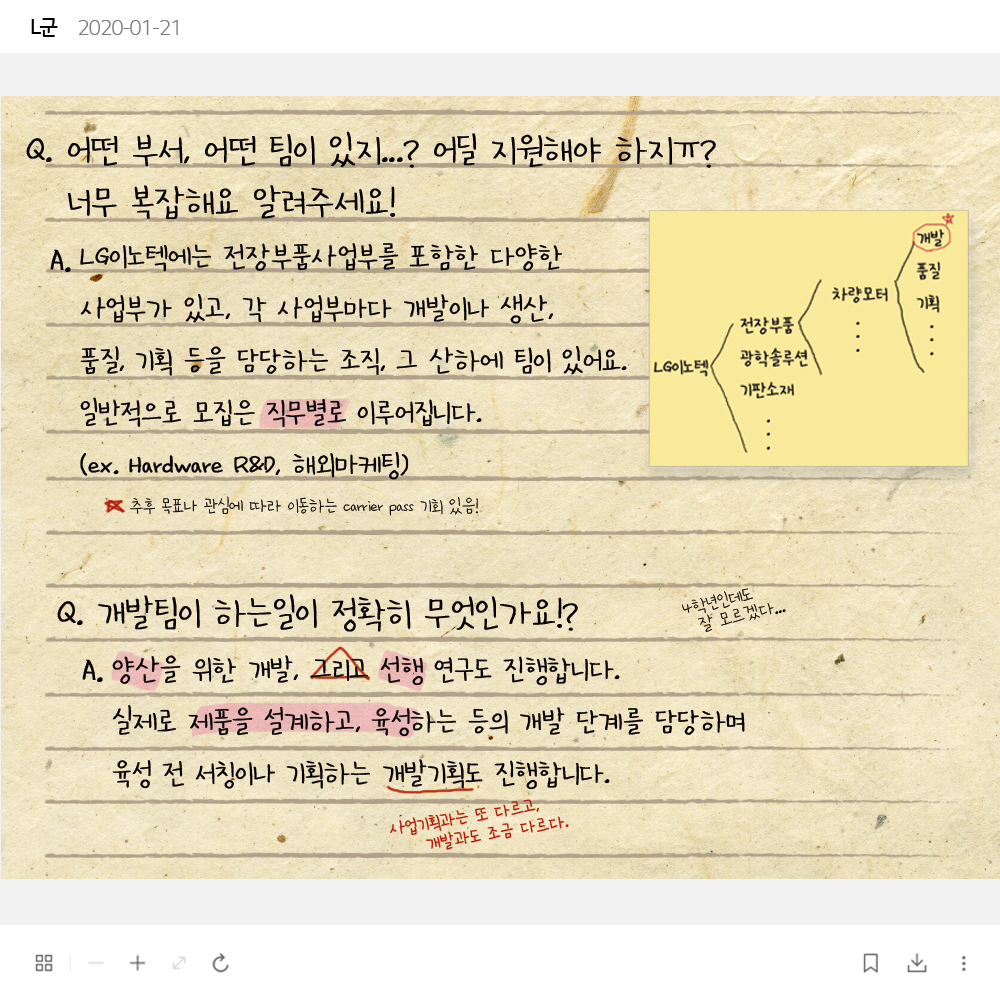 L군 2020-01-21
Q. 어떤 부서, 어떤 팀이 있지...? 어딜 지원해야 하지ㅠ?
너무 복잡해요 알려주세요!
A. LG이노텍에는 전장부품사업부를 포함한 다양한
사업부가 있고, 각 사업부마다 개발이나 생산,
품질, 기획 등을 담당하는 조직, 그 산하에 팀이 있어요.
일반적으로 모집은 직무별로 이루어집니다.
(ex. Hardware R&D, 해외마케팅)
추후 목표나 관심에 따라 이동하는 carrier pass 기회 있음!
LG이노텍
전장부품
광학솔루션
기판소재
차량모터
개발
품질
기획
Q. 개발팀이 하는일이 정확히 무엇인가요!?
4학년인데도
잘 모르겠다...
A. 양산을 위한 개발, 그리고 선행 연구도 진행합니다.
실제로 제품을 설계하고, 육성하는 등의 개발 단계를 담당하며
육성 전 서칭이나 기획하는 개발기획도 진행합니다.
사업기획과는 또 다르고,
개발과도 조금 다르다.